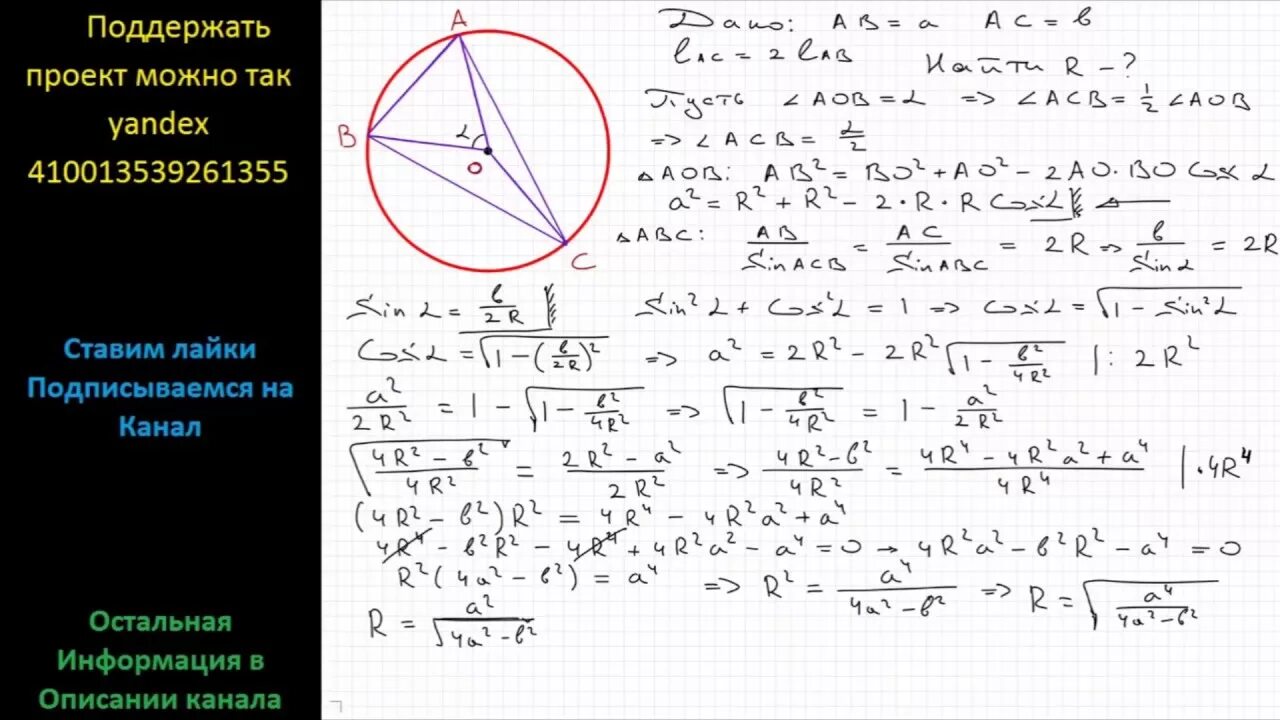 Поддержать
проект можно так
yandex
410013539261355
Ставим лайки
Подписываемся на
Канал
Остальная
Информация в
Описании канала
A
B
α
O
C
Дано: AB = a AC = в
l_AC = 2 l_AB Найти R - ?
Пусть ∠AOB = α => ∠ACB = 1/2 ∠AOB
=> ∠ACB = α/2
△AOB: AB² = BO² + AO² - 2AO·BO Cos α
a² = R² + R² - 2·R·R Cos α
△ABC: AB/Sin ACB = AC/Sin ABC = 2R => в/Sin α = 2R
Sin α = в/2R Sin² α + Cos² α = 1 => Cos α = √(1 - Sin² α)
Cos α = √(1 - (в/2R)²) => a² = 2R² - 2R² √(1 - в²/4R²) |: 2R²
a²/2R² = 1 - √(1 - в²/4R²) => √(1 - в²/4R²) = 1 - a²/2R²
√((4R² - в²)/4R²) = (2R² - a²)/2R² => (4R² - в²)/4R² = (4R⁴ - 4R²a² + a⁴)/4R⁴ |·4R⁴
(4R² - в²)R² = 4R⁴ - 4R²a² + a⁴
4R⁴ - в²R² - 4R⁴ + 4R²a² - a⁴ = 0 → 4R²a² - в²R² - a⁴ = 0
R²(4a² - в²) = a⁴ => R² = a⁴/(4a² - в²) => R = √(a⁴/(4a² - в²))
R = a²/√(4a² - в²)